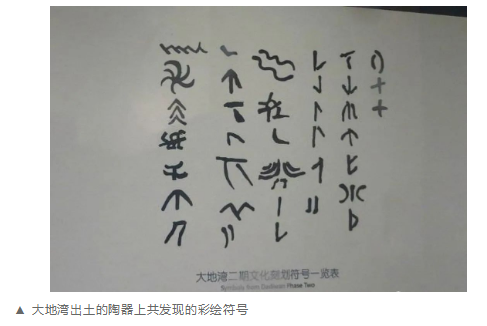 大地湾二期文化刻划符号一览表
Symbols from Dadiwan Phase Two
▲ 大地湾出土的陶器上共发现的彩绘符号